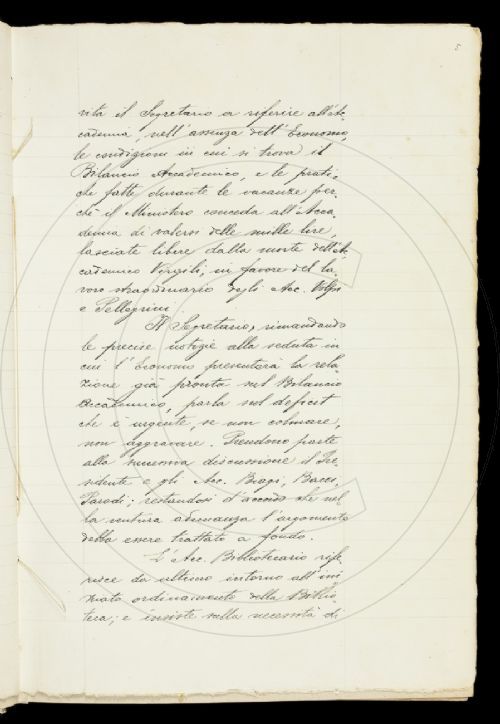 5
vita il Segretario a riferire all'Ac-
cademia, nell'assenza dell'Economo,
le condizioni in cui si trova il
Bilancio Accademico, e le prati-
che fatte durante le vacanze per-
chè il Ministero conceda all'Acca-
demia di valersi delle mille lire,
lasciate libere dalla morte dell'Ac-
cademico Vergili, in favore del la-
voro straordinario degli Acc. Volpi
e Pellegrini.
Il Segretario, rimandando
le precise notizie alla seduta in
cui l'Economo presenterà la rela-
zione già pronta sul Bilancio
Accademico, parla sul deficit
che è urgente, se non colmare,
non aggravare. Prendono parte
alla successiva discussione il Pre-
sidente e gli Acc. Biagi, Bacci,
Parodi; restandosi d'accordo che nel-
la ventura adunanza l'argomento
debba essere trattato a fondo.
L'Acc. Bibliotecario rife-
risce da ultimo intorno all'ini-
ziato ordinamento della Biblio-
teca; e insiste sulla necessità di